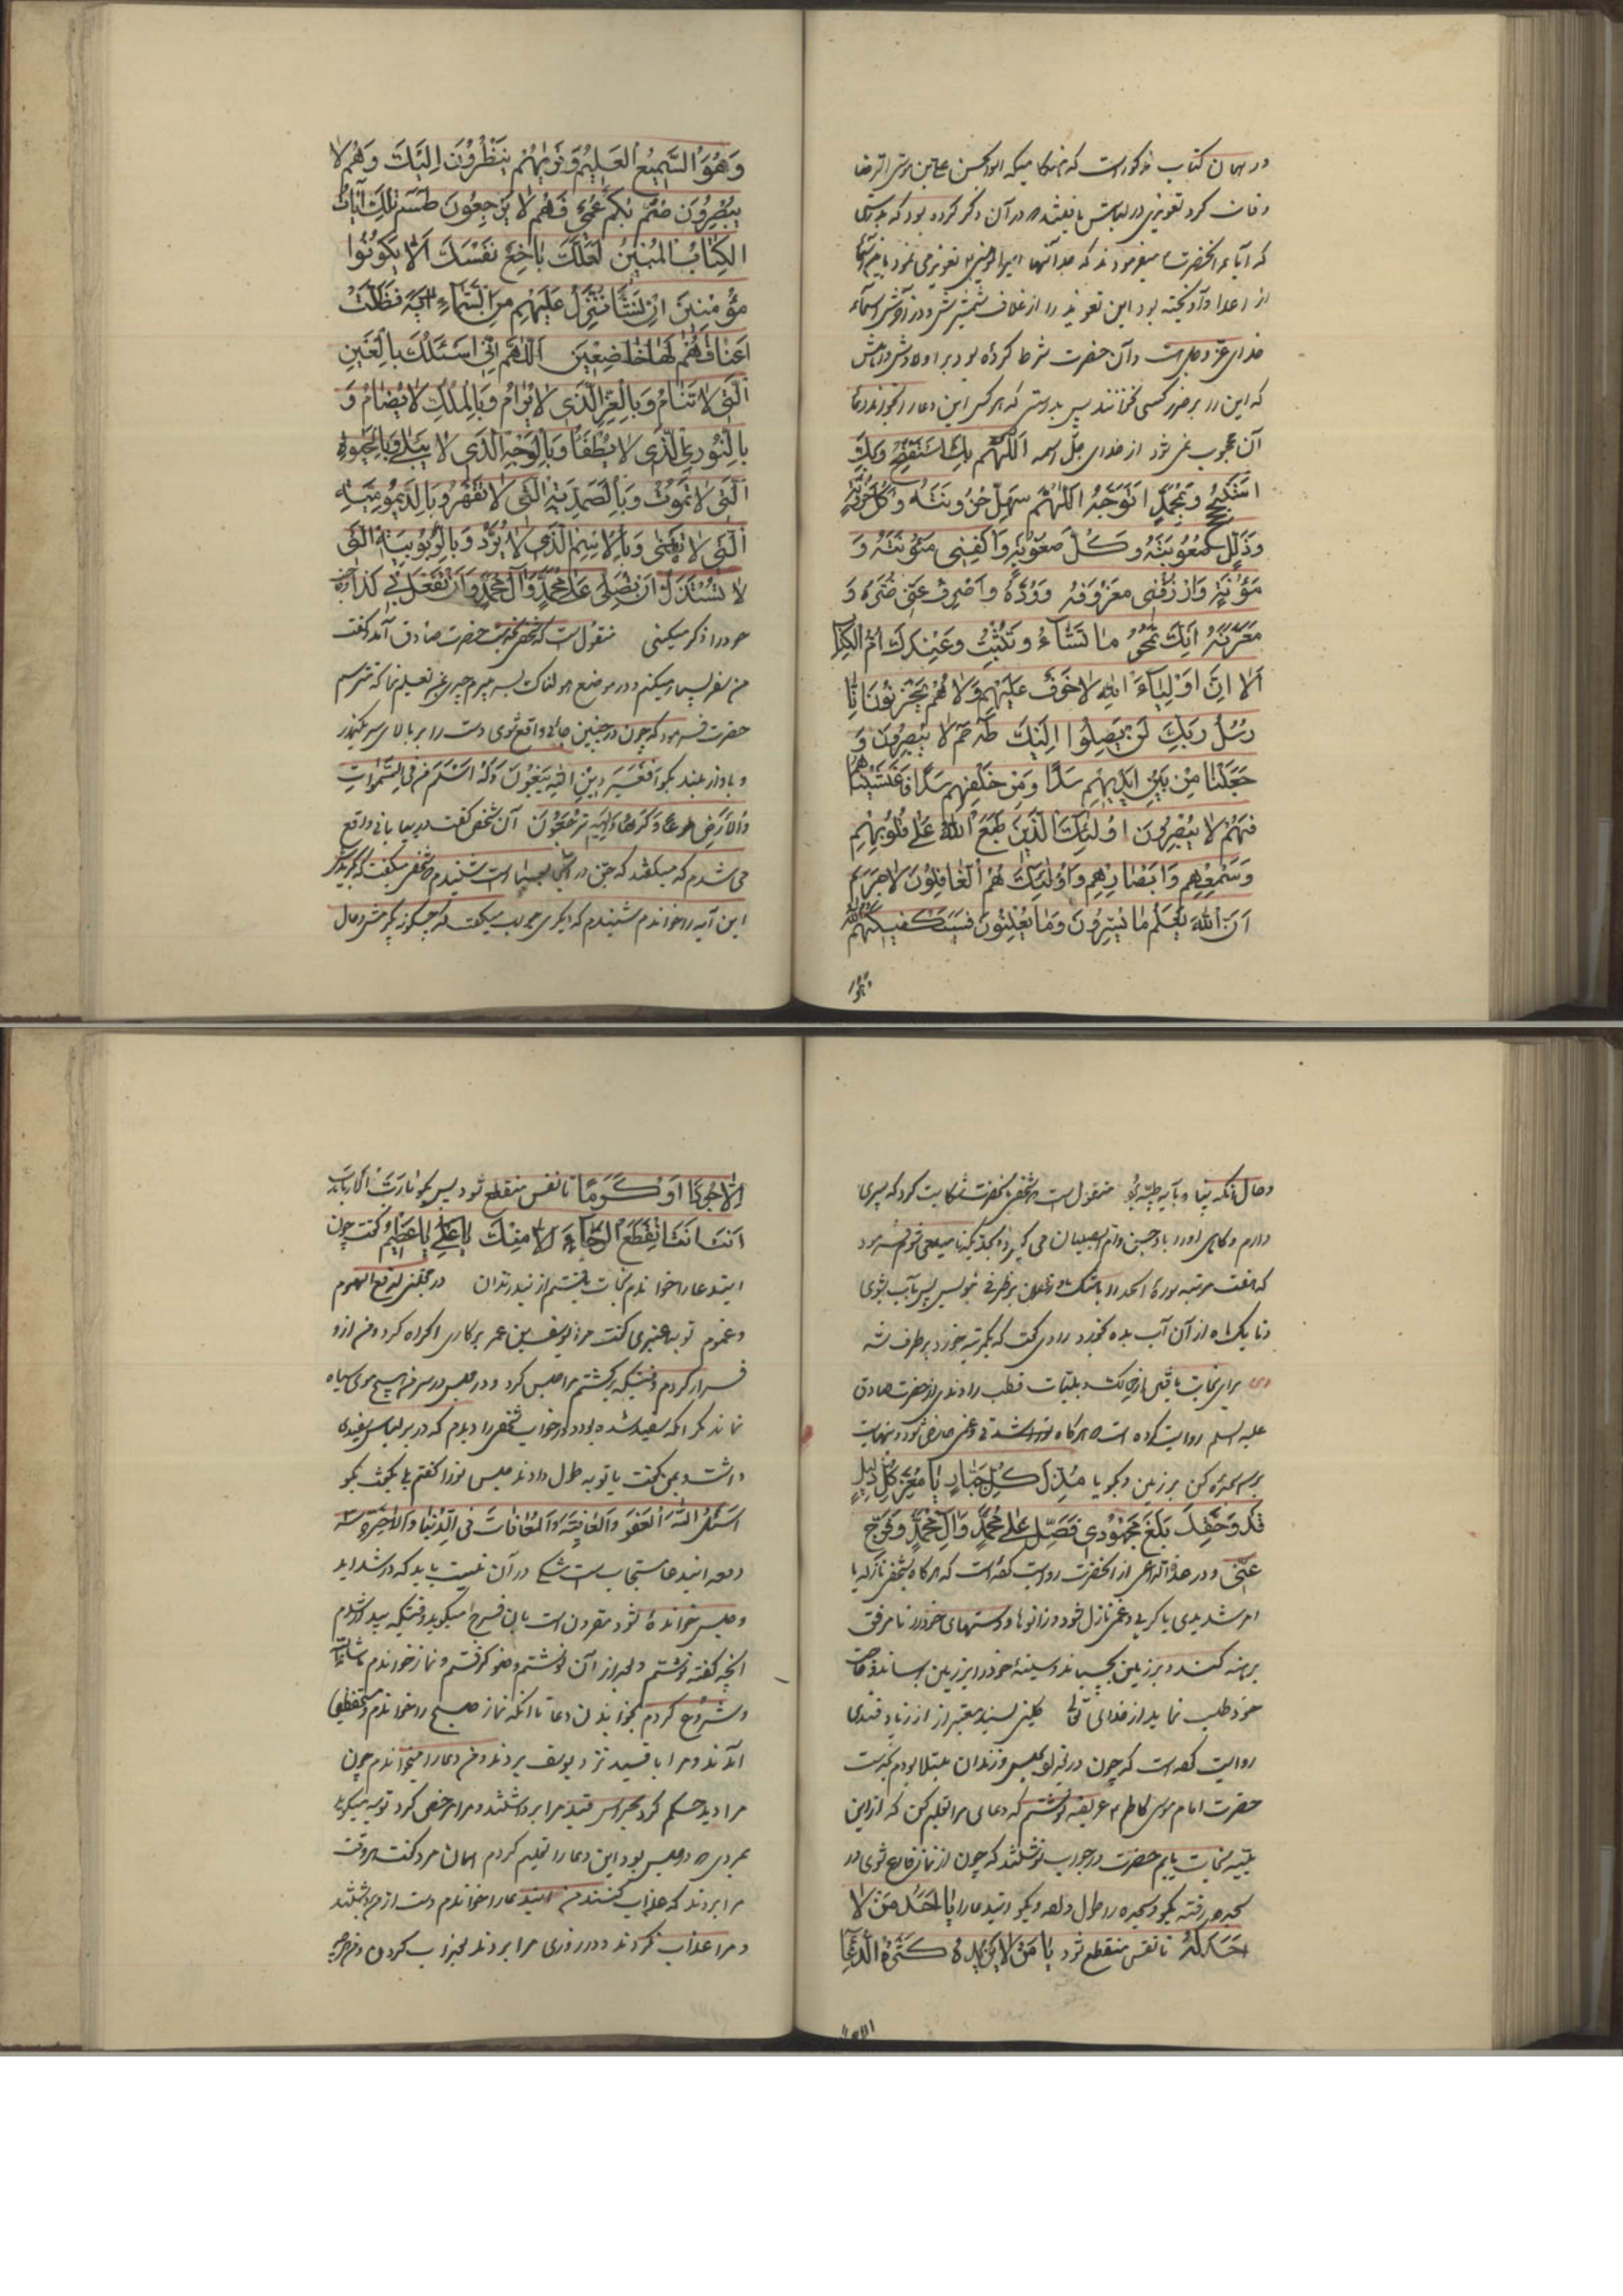 در همان کتاب مذکور است که هنگامیکه ابوالحسن علی بن موسی الرضا
وفات کرد تعویذی در لباسش یافتند که در آن ذکر کرده بود که
که آباء آنحضرت میفرمودند که جد آنها امیرالمؤمنین تعویذ می نمود باین
از اعدا و آویخته بود این تعویذ را از غلاف شمشیرش و در آن اسماء
خدای عزوجل است و آن حضرت شرط کرده بود بر اولادش و اهلش
که این را بر ضرر کسی نخوانند پس بدرستی که هر کس این دعا را بخواند دعای
آن محجوب نمی شود از خدای جل اسمه اَللّهُمَّ بِكَ اَسْتَفْتِحُ وَبِكَ
اَسْتَنْجِحُ وَبِمُحَمَّدٍ اَتَوَجَّهُ اَللّهُمَّ سَهِّلْ حُزُونَتَهُ وَكُلَّ حُزُونَةٍ
وَذَلِّلْ صُعُوبَتَهُ وَكُلَّ صُعُوبَةٍ وَاكْفِنِی مَؤُنَتَهُ وَ
مَؤُنَةٍ وَارْزُقْنِی مَعْرُوفَهُ وَوُدَّهُ وَاصْرِفْ عَنِّی ضَرَّهُ وَ
مَعَرَّتَهُ اِنَّكَ تَمْحُو مَا تَشَاءُ وَتُثْبِتُ وَعِنْدَكَ اُمُّ الْكِتَابِ
اَلا اِنَّ اَوْلِيَاءَ اللهِ لا خَوْفٌ عَلَيْهِمْ وَلا هُمْ يَحْزَنُونَ اِنَّا
رُسُلُ رَبِّكَ لَنْ يَصِلُوا اِلَيْكَ طه حم لا يُبْصِرُونَ وَ
جَعَلْنَا مِنْ بَيْنِ اَيْدِيهِمْ سَدًّا وَمِنْ خَلْفِهِمْ سَدًّا فَاَغْشَيْنَاهُمْ
فَهُمْ لا يُبْصِرُونَ اُولئِكَ الَّذِينَ طَبَعَ اللهُ عَلى قُلُوبِهِمْ
وَسَمْعِهِمْ وَاَبْصَارِهِمْ وَاُولئِكَ هُمُ الْغَافِلُونَ لاجَرَمَ
اَنَّ اللهَ يَعْلَمُ مَا يُسِرُّونَ وَمَا يُعْلِنُونَ فَسَيَكْفِيكَهُمُ اللهُ
وَهُوَ السَّمِيعُ الْعَلِيمُ وَتَرَاهُمْ يَنْظُرُونَ اِلَيْكَ وَهُمْ لا
يُبْصِرُونَ صُمٌّ بُكْمٌ عُمْیٌ فَهُمْ لا يَرْجِعُونَ طسم تِلْكَ آيَاتُ
الْكِتَابِ الْمُبِينِ لَعَلَّكَ بَاخِعٌ نَفْسَكَ اَلّا يَكُونُوا
مُؤْمِنِينَ اِنْ نَشَأْ نُنَزِّلْ عَلَيْهِمْ مِنَ السَّمَاءِ آيَةً فَظَلَّتْ
اَعْنَاقُهُمْ لَهَا خَاضِعِينَ اَللّهُمَّ اِنِّی اَسْئَلُكَ بِالْعَيْنِ
الَّتِی لا تَنَامُ وَبِالْعِزِّ الَّذِی لا يُرَامُ وَبِالْمُلْكِ لا يُضَامُ وَ
بِالنُّورِ الَّذِی لا يُطْفَأُ وَبِالْوَجْهِ الَّذِی لا يَبْلى وَبِالْحَيوةِ
الَّتِی لا تَمُوتُ وَبِالصَّمَدِيَّةِ الَّتِی لا تُقْهَرُ وَبِالدَّيْمُومِيَّةِ
الَّتِی لا تَفْنى وَبِالاِسْمِ الَّذِی لا يُرَدُّ وَبِالرُّبُوبِيَّةِ الَّتِی
لا تُسْتَذَلُّ اَنْ تُصَلِّیَ عَلى مُحَمَّدٍ وَآلِ مُحَمَّدٍ وَاَنْ تَفْعَلَ بِی كَذَا
خود را ذکر میکنی منقول است که شخصی بخدمت حضرت صادق آمد و گفت
من سفر بسیار میکنم و در موضع هولناک بسر میبرم چیزی بمن تعلیم نما که نترسم
حضرت فرمود که چون در چنین جائی واقع شوی دست را بر بالای سر بگذار
و بآواز بلند بگو اَفَغَيْرَ دِينِ اللهِ يَبْغُونَ وَلَهُ اَسْلَمَ مَنْ فِی السَّموَاتِ
وَالْاَرْضِ طَوْعًا وَكَرْهًا وَاِلَيْهِ تُرْجَعُونَ آن شخص گفت در بیابانی واقع
می شدم که میگفتند که جن در آنجا بسیار است شنیدم شخصی میگفت که بگیریدش
این آیه را خواندم شنیدم که دیگری جواب میگفت که چگونه بگیرمش و حال
وحال آنکه پناه بآیه طیبه منقول است شخصی بآنحضرت شکایت کرد که پسری
دارم و گاهی او را باد جن و ام الصبیان می گیرد بحدیکه ناامید می شوم فرمود
که هفت مرتبه سوره الحمد را با مشک و زعفران بر ظرفی بنویس پس بآب بشوی
و تا یک ماه از آن آب بده بخورد راوی گفت که یکمرتبه خورد برطرف شد
برای نجات یافتن از مکث و بلیات قطب راوندی از حضرت صادق
علیه السلم روایت کرده است هرگاه تو را شدتی و غمی عارض شود در نهایت
سجده کن بر زمین و بگو یا مُذِلَّ كُلِّ جَبَّارٍ يَا مُعِزَّ كُلِّ ذَلِيلٍ
قَدْ وَحَقِّكَ بَلَغَ مَجْهُودِی فَصَلِّ عَلى مُحَمَّدٍ وَآلِ مُحَمَّدٍ وَفَرِّجْ
عَنِّی و در عدة الداعی از آنحضرت روایت کرده است که هرگاه بشخصی نازله یا
امر شدیدی یا کربی و غمی نازل شود زانوها و دستهای خود را تا مرفق
برهنه کند و بر زمین بچسباند و سینهٔ خود را بر زمین برساند و حاجت
خود طلب نماید از خدای تعالی کلینی بسند معتبر از زیاد قندی
روایت کرده است که چون در حبس و زندان مبتلا بودم بخدمت
حضرت امام موسی کاظم عریضه نوشتم که دعائی مرا تعلیم کن که از این
بلیه نجات یابم حضرت در جواب نوشتند که چون از نماز فارغ شوی در
سجده رفته بگو و سجده را طول و بگو ایندعا را يَا اَحَدَ مَنْ لا
اَحَدَ لَهُ تا نفس منقطع شود يَا مَنْ لا يَزِيدُهُ كَثْرَةُ الدُّعَاءِ
اِلّا جُودًا اَوْ كَرَمًا تا نفس منقطع شود پس بگو يَا رَبَّ الْاَرْبَابِ
اَنْتَ اَنْتَ انْقَطَعَ الرَّجَاءُ اِلّا مِنْكَ يَا عَلِیُّ يَا عَظِيمُ و گفت چون
ایندعا را خواندم نجات یافتم از بند زندان در مجتنی لدفع الهموم
و غموم توبه عنبری گفت مرا یوسف بن عمر بر کاری اکراه کرد و من از او
فرار کردم وقتیکه برگشتم مرا حبس کرد و در حبس در سر من هیچ موی سیاه
نماند مگر آنکه سفید شده بود در خواب شخصی را دیدم که در بر لباس سفیدی
داشت و بمن گفت یا توبه طول دادند حبس تو را گفتم بلی گفت بگو
اَسْئَلُ اللهَ الْعَفْوَ وَالْعَافِيَةَ وَالْمُعَافَاتَ فِی الدُّنْيَا وَالْآخِرَةِ سه
دفعه ایندعا مستجاب است شکی در آن نیست باید که در شداید
و حبس خوانده شود مقرون است بآن فرج میگوید وقتیکه بیدار شدم
آنچه گفته نوشتم و بعد از آن نوشتم وضو گرفتم و نماز خواندم ما شاء الله
و شروع کردم بخواندن دعا تا آنکه نماز صبح را خواندم
آمدند و مرا با قید نزد یوسف بردند و من دعا را میخواندم چون
مرا دید حکم کرد قید مرا برداشتند و مرا مرخص کرد توبه میگوید
بمردی که در حبس بود این دعا را تعلیم کردم آن مرد گفت هر وقت
مرا بردند که عذاب کنند من ایندعا را خواندم دست از من برداشتند
و مرا عذاب نکردند و در روزی مرا بردند بعذاب کردن